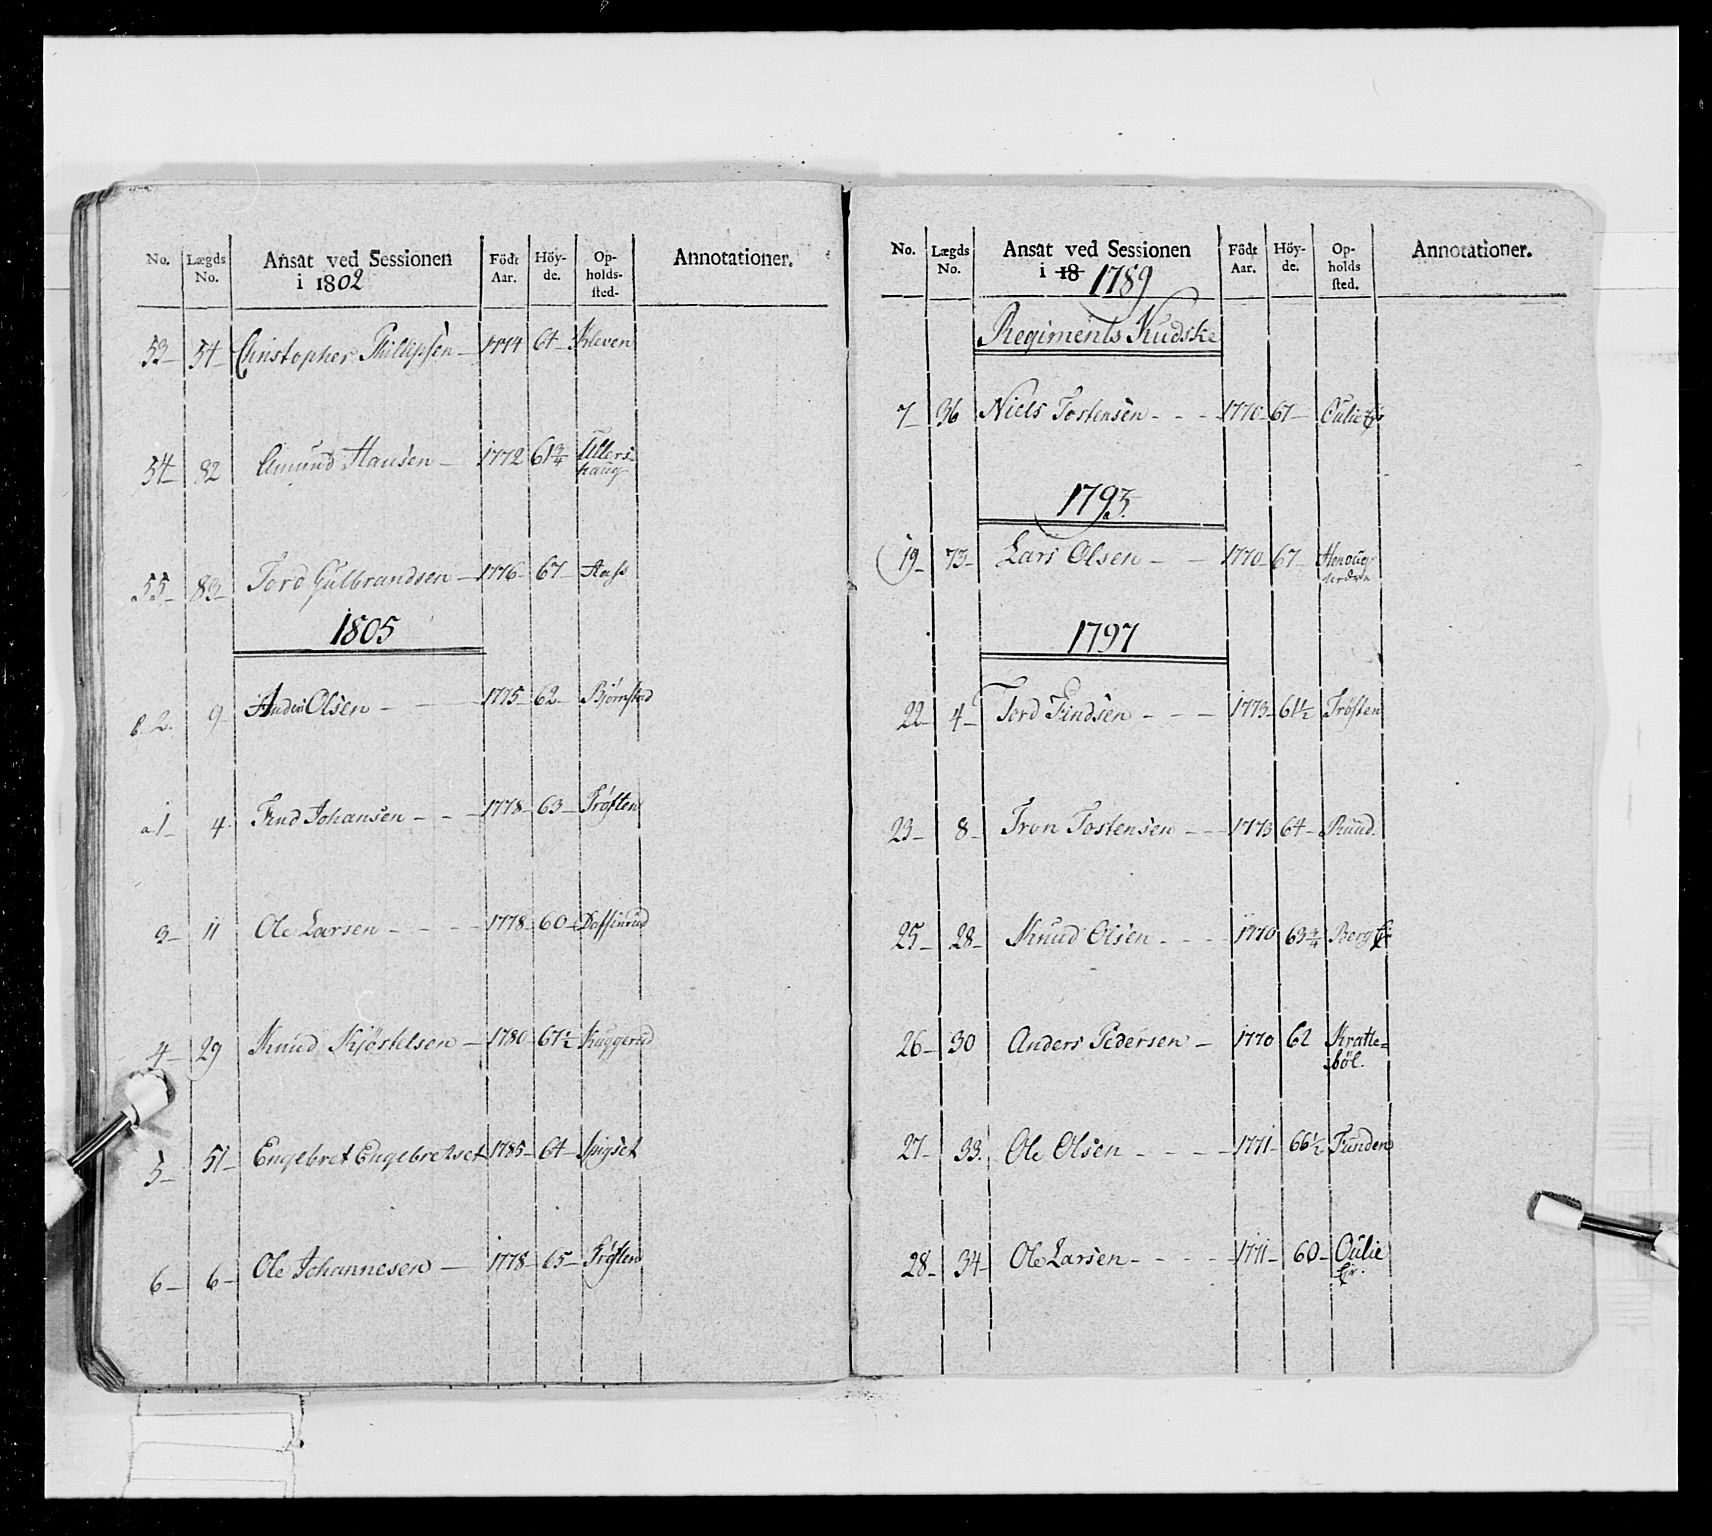 No. Lægds No. Ansat ved Sessionen i 1802 Födt Aar. Höy-de. Op-holds-sted- Annotationer.
53- 54- Christopher Phillipsen- 1774 64- Kleven
54- 82 Amund Hansen- 1772 61 3/4 Ullers-haug
55- 83- Tord Gulbrandsen- 1776- 67- Aass
1805
b. 2. 9- Anders Olsen - - 1775- 62- Björnstad
a. 1- 4. Find Johansen - - - 1778- 63- Tröften
3- 11 Ole Larsen - - - - 1778- 60-
4- 29 Knud Kjöstelsen- 1780- 67 1/2 Kuggerud
5- 51- Engebret Engebretset 1785- 64- Spigset
6- 6- Ole Johannesen- 1778- 65- Tröften
No. Lægds No. Ansat ved Sessionen i 18 1789 Födt Aar. Höy-de. Op-holds sted. Annotationer.
Regiments Kudske
7- 36 Niels Tostensen - - - 1770- 67- Oulie
1793.
19- 73- Lars Olsen - - 1770 67-
1797
22- 4- Tord Findsen - - - 1773- 61 1/2 Tröften
23- 8- Tron Tostensen - - - 1773 64- Ruud.
25- 28- Knud Olsen - - - 1770 63 3/4 Berg
26- 30 Anders Pedersen - 1770 62 Kratte=böl.
27- 33. Ole Olsen - - - - 1771- 66 1/2 Funden
28- 34- Ole Larsen - - - - 1771- 60- Oulie